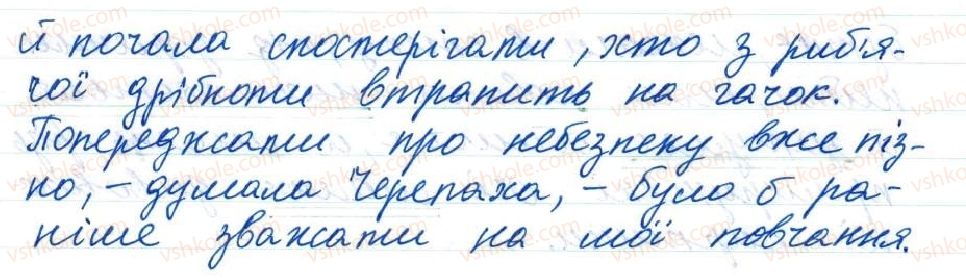 й почала спостерігати, хто з риб'я-
чої дрібноти втрапить на гачок.
Попереджати про небезпеку вже піз-
но, – думала Черепаха, – було б ра-
ніше зважати на мої повчання.